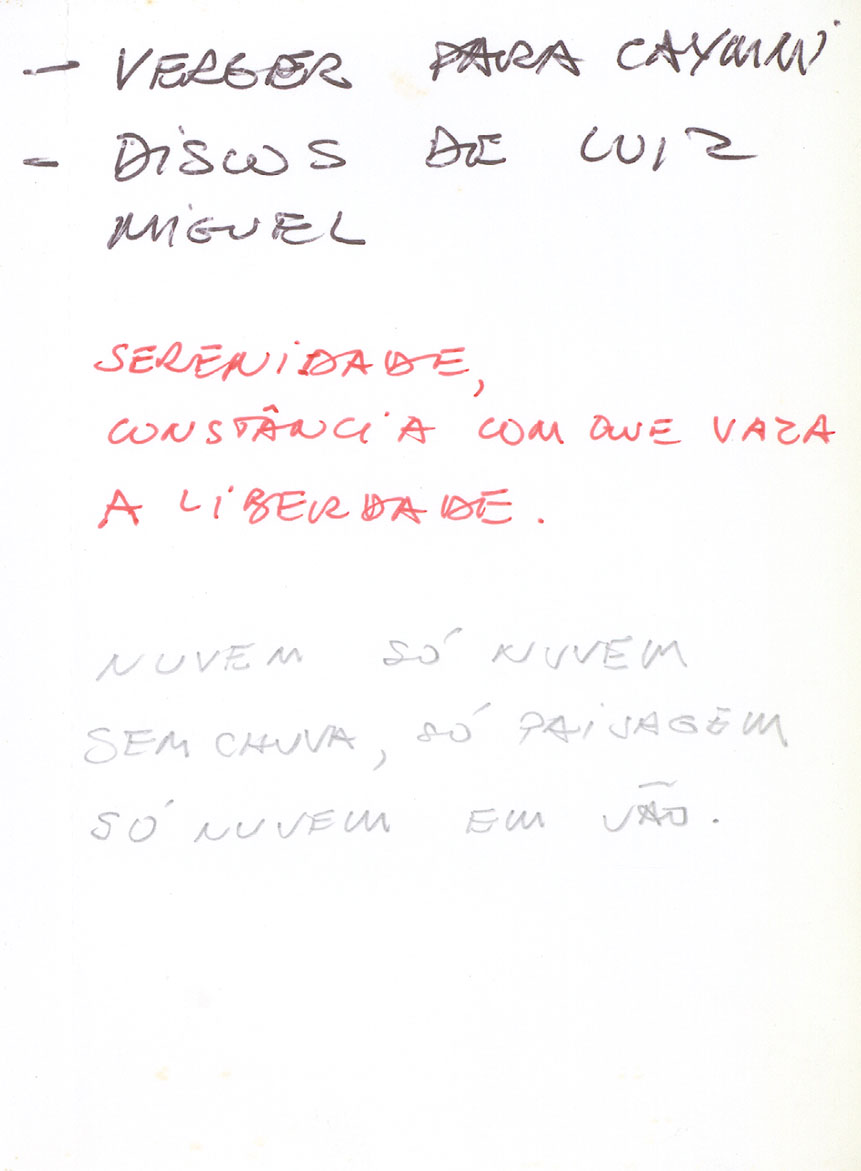 - VERGER PARA CAYMMI
- DISCOS DE LUIZ
MIGUEL
SERENIDADE,
CONSTÂNCIA COM QUE VAZA
A LIBERDADE.
NUVEM SÓ NUVEM
SEM CHUVA, SÓ PAISAGEM
SÓ NUVEM EM VÃO.